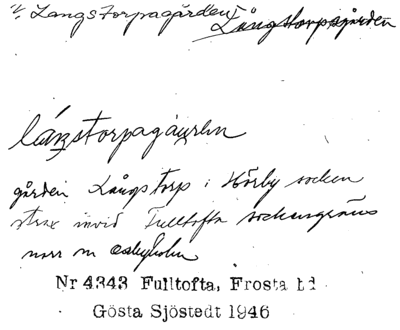 Långstorpagården Långstorpsgården
långstorpagáԛn
gården Långstorp i Hörby socken
strax invid Fulltofta sockengräns
norr om
Nr 4343 Fulltofta, Frosta hd
Gösta Sjöstedt 1946